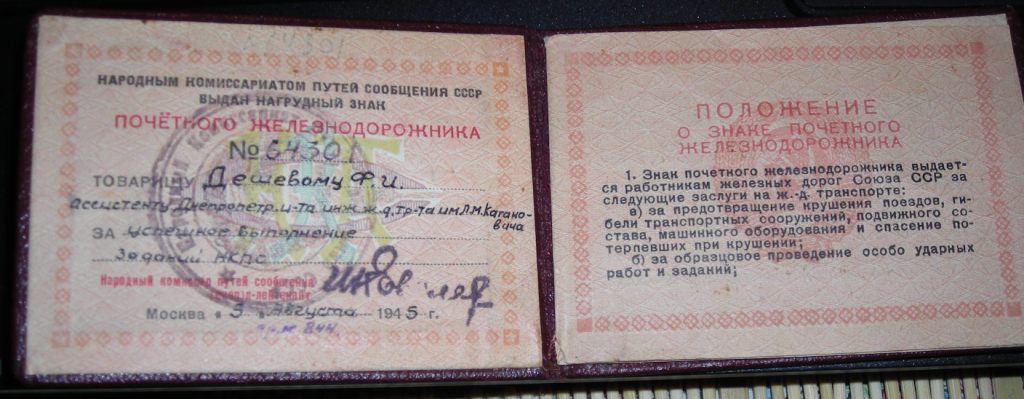 НАРОДНЫМ КОМИССАРИАТОМ ПУТЕЙ СООБЩЕНИЯ СССР
ВЫДАН НАГРУДНЫЙ ЗНАК
ПОЧЁТНОГО ЖЕЛЕЗНОДОРОЖНИКА
№ 64301
ТОВАРИЩУ Дешевому Ф.И.
Ассистенту Днепропетр. и-та инж. ж.д. тр-та им Л.М. Кагано-
вича
ЗА успешное выполнение
Заданий НКПС
Народный комиссар путей сообщения
генерал-лейтенант
Москва « 3 » Августа 1945 г.
пр. № 844.
ПОЛОЖЕНИЕ
О ЗНАКЕ ПОЧЕТНОГО
ЖЕЛЕЗНОДОРОЖНИКА
1. Знак почетного железнодорожника выдает-
ся работникам железных дорог Союза ССР за
следующие заслуги на ж.-д. транспорте:
а) за предотвращение крушения поездов, ги-
бели транспортных сооружений, подвижного со-
става, машинного оборудования и спасение по-
терпевших при крушении;
б) за образцовое проведение особо ударных
работ и заданий;